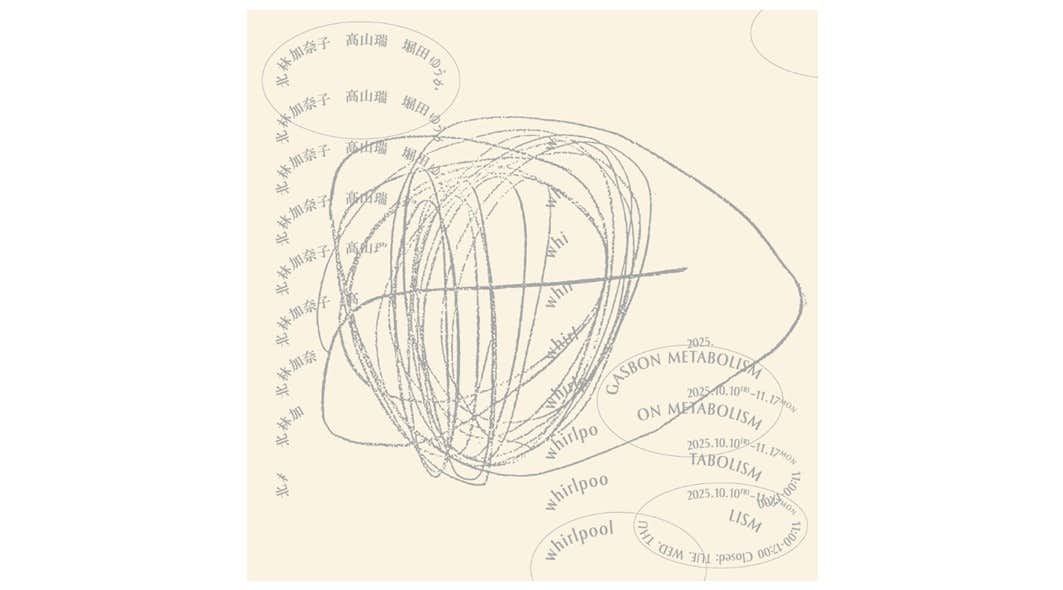 北林加奈子 髙山瑞 堀田ゆうか
北林加奈子 髙山瑞 堀田ゆう
北林加奈子 髙山瑞 堀田ゆ
北林加奈子 髙山瑞
北林加奈子 髙山
北林加奈子 髙
北林加奈
北林加
北
w
wh
whi
whir
whirl
whirlp
whirlpo
whirlpoo
whirlpool
2025.
GASBON METABOLISM
2025.10.10FRI–11.17MON
ON METABOLISM
2025.10.10FRI–11.17MON
TABOLISM
11:00-
2025.10.10FRI–11.17MON
LISM
11:00-17:00 Closed: TUE, WED, THU